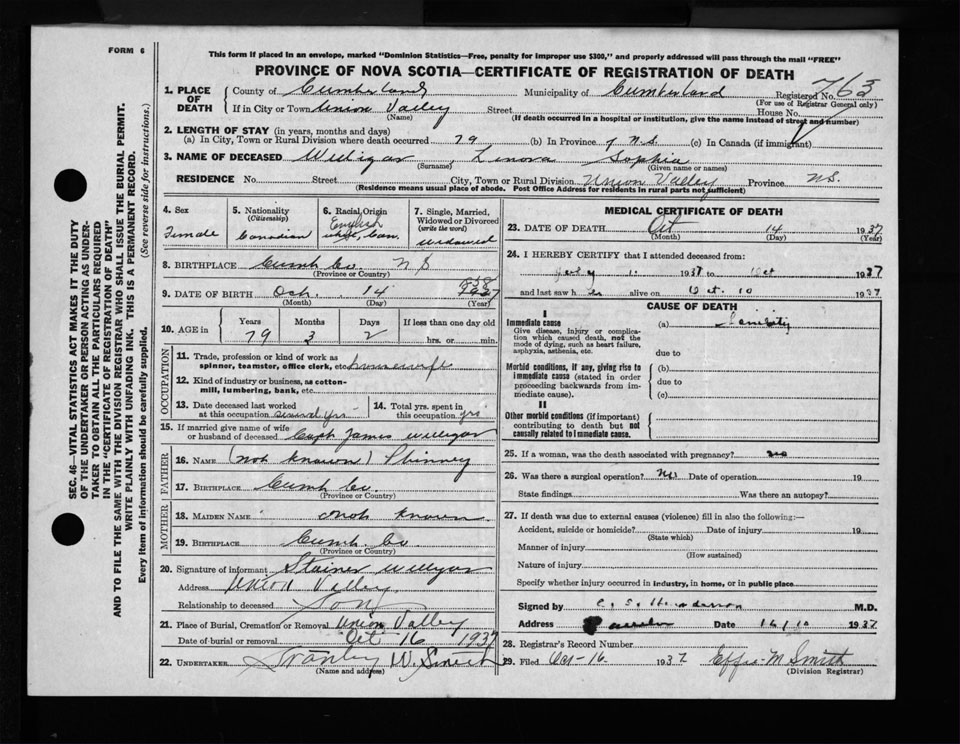 FORM 6
This form if placed in an envelope, marked "Dominion Statistics—Free, penalty for improper use $300," and properly addressed will pass through the mail "FREE"
PROVINCE OF NOVA SCOTIA—CERTIFICATE OF REGISTRATION OF DEATH
1. PLACE OF DEATH
County of Cumberland Municipality of Cumberland Registered No. 763
(For use of Registrar General only)
If in City or Town Union Valley Street House No.
(Name) (If death occurred in a hospital or institution, give the name instead of street and number)
2. LENGTH OF STAY (in years, months and days)
(a) In City, Town or Rural Division where death occurred 79 (b) In Province N.S. (c) In Canada (if immigrant)
3. NAME OF DECEASED Lenora Sophia
(Surname) (Given name or names)
RESIDENCE No. Street City, Town or Rural Division Union Valley Province N.S.
(Residence means usual place of abode. Post Office Address for residents in rural parts not sufficient)
4. Sex
Female
5. Nationality
(Citizenship)
Canadian
6. Racial Origin
English
white, Can.
7. Single, Married, Widowed or Divorced
(write the word)
widowed
8. BIRTHPLACE Cumb Co. N S
(Province or Country)
9. DATE OF BIRTH 14
(Month) (Day) (Year)
10. AGE in
Years Months Days If less than one day old
79 3 2 hrs. or min.
OCCUPATION
11. Trade, profession or kind of work as
spinner, teamster, office clerk, etc. housewife
12. Kind of industry or business, as cotton-
mill, lumbering, bank, etc.
13. Date deceased last worked
at this occupation several yrs
14. Total yrs. spent in
this occupation yrs
15. If married give name of wife
or husband of deceased Capt James
FATHER
16. NAME (not known) Phinney
17. BIRTHPLACE Cumb Co.
(Province or Country)
MOTHER
18. MAIDEN NAME not known
19. BIRTHPLACE Cumb. Co.
(Province or Country)
20. Signature of informant
Address Union Valley
Relationship to deceased Son
21. Place of Burial, Cremation or Removal Union Valley
Date of burial or removal Oct 16 1937
22. UNDERTAKER Stanley W. Smith
(Name and address)
MEDICAL CERTIFICATE OF DEATH
23. DATE OF DEATH Oct 14 1937
(Month) (Day) (Year)
24. I HEREBY CERTIFY that I attended deceased from:
1. 1937 to Oct 1937
and last saw h er alive on Oct. 10 1937
CAUSE OF DEATH
I
Immediate cause
Give disease, injury or complica-
tion which caused death, not the
mode of dying, such as heart failure,
asphyxia, asthenia, etc.
(a) Senility
due to
Morbid conditions, if any, giving rise to
immediate cause (stated in order
proceeding backwards from im-
mediate cause).
(b)
due to
(c)
II
Other morbid conditions (if important)
contributing to death but not
causally related to immediate cause.
25. If a woman, was the death associated with pregnancy? no
26. Was there a surgical operation? No Date of operation 19
State findings Was there an autopsy?
27. If death was due to external causes (violence) fill in also the following:—
Accident, suicide or homicide? Date of injury 19
(State which)
Manner of injury
(How sustained)
Nature of injury
Specify whether injury occurred in industry, in home, or in public place
Signed by C. S. Henderson M.D.
Address Date 16/10 1937
28. Registrar's Record Number
29. Filed Oct-16- 1937 Effie M Smith
(Division Registrar)
SEC. 46—VITAL STATISTICS ACT MAKES IT THE DUTY
OF THE UNDERTAKER OR PERSON ACTING AS UNDER-
TAKER TO OBTAIN ALL THE PARTICULARS REQUIRED
IN THE "CERTIFICATE OF REGISTRATION OF DEATH"
AND TO FILE THE SAME WITH THE DIVISION REGISTRAR WHO SHALL ISSUE THE BURIAL PERMIT.
WRITE PLAINLY WITH UNFADING INK. THIS IS A PERMANENT RECORD.
Every item of information should be carefully supplied. (See reverse side for instructions.)